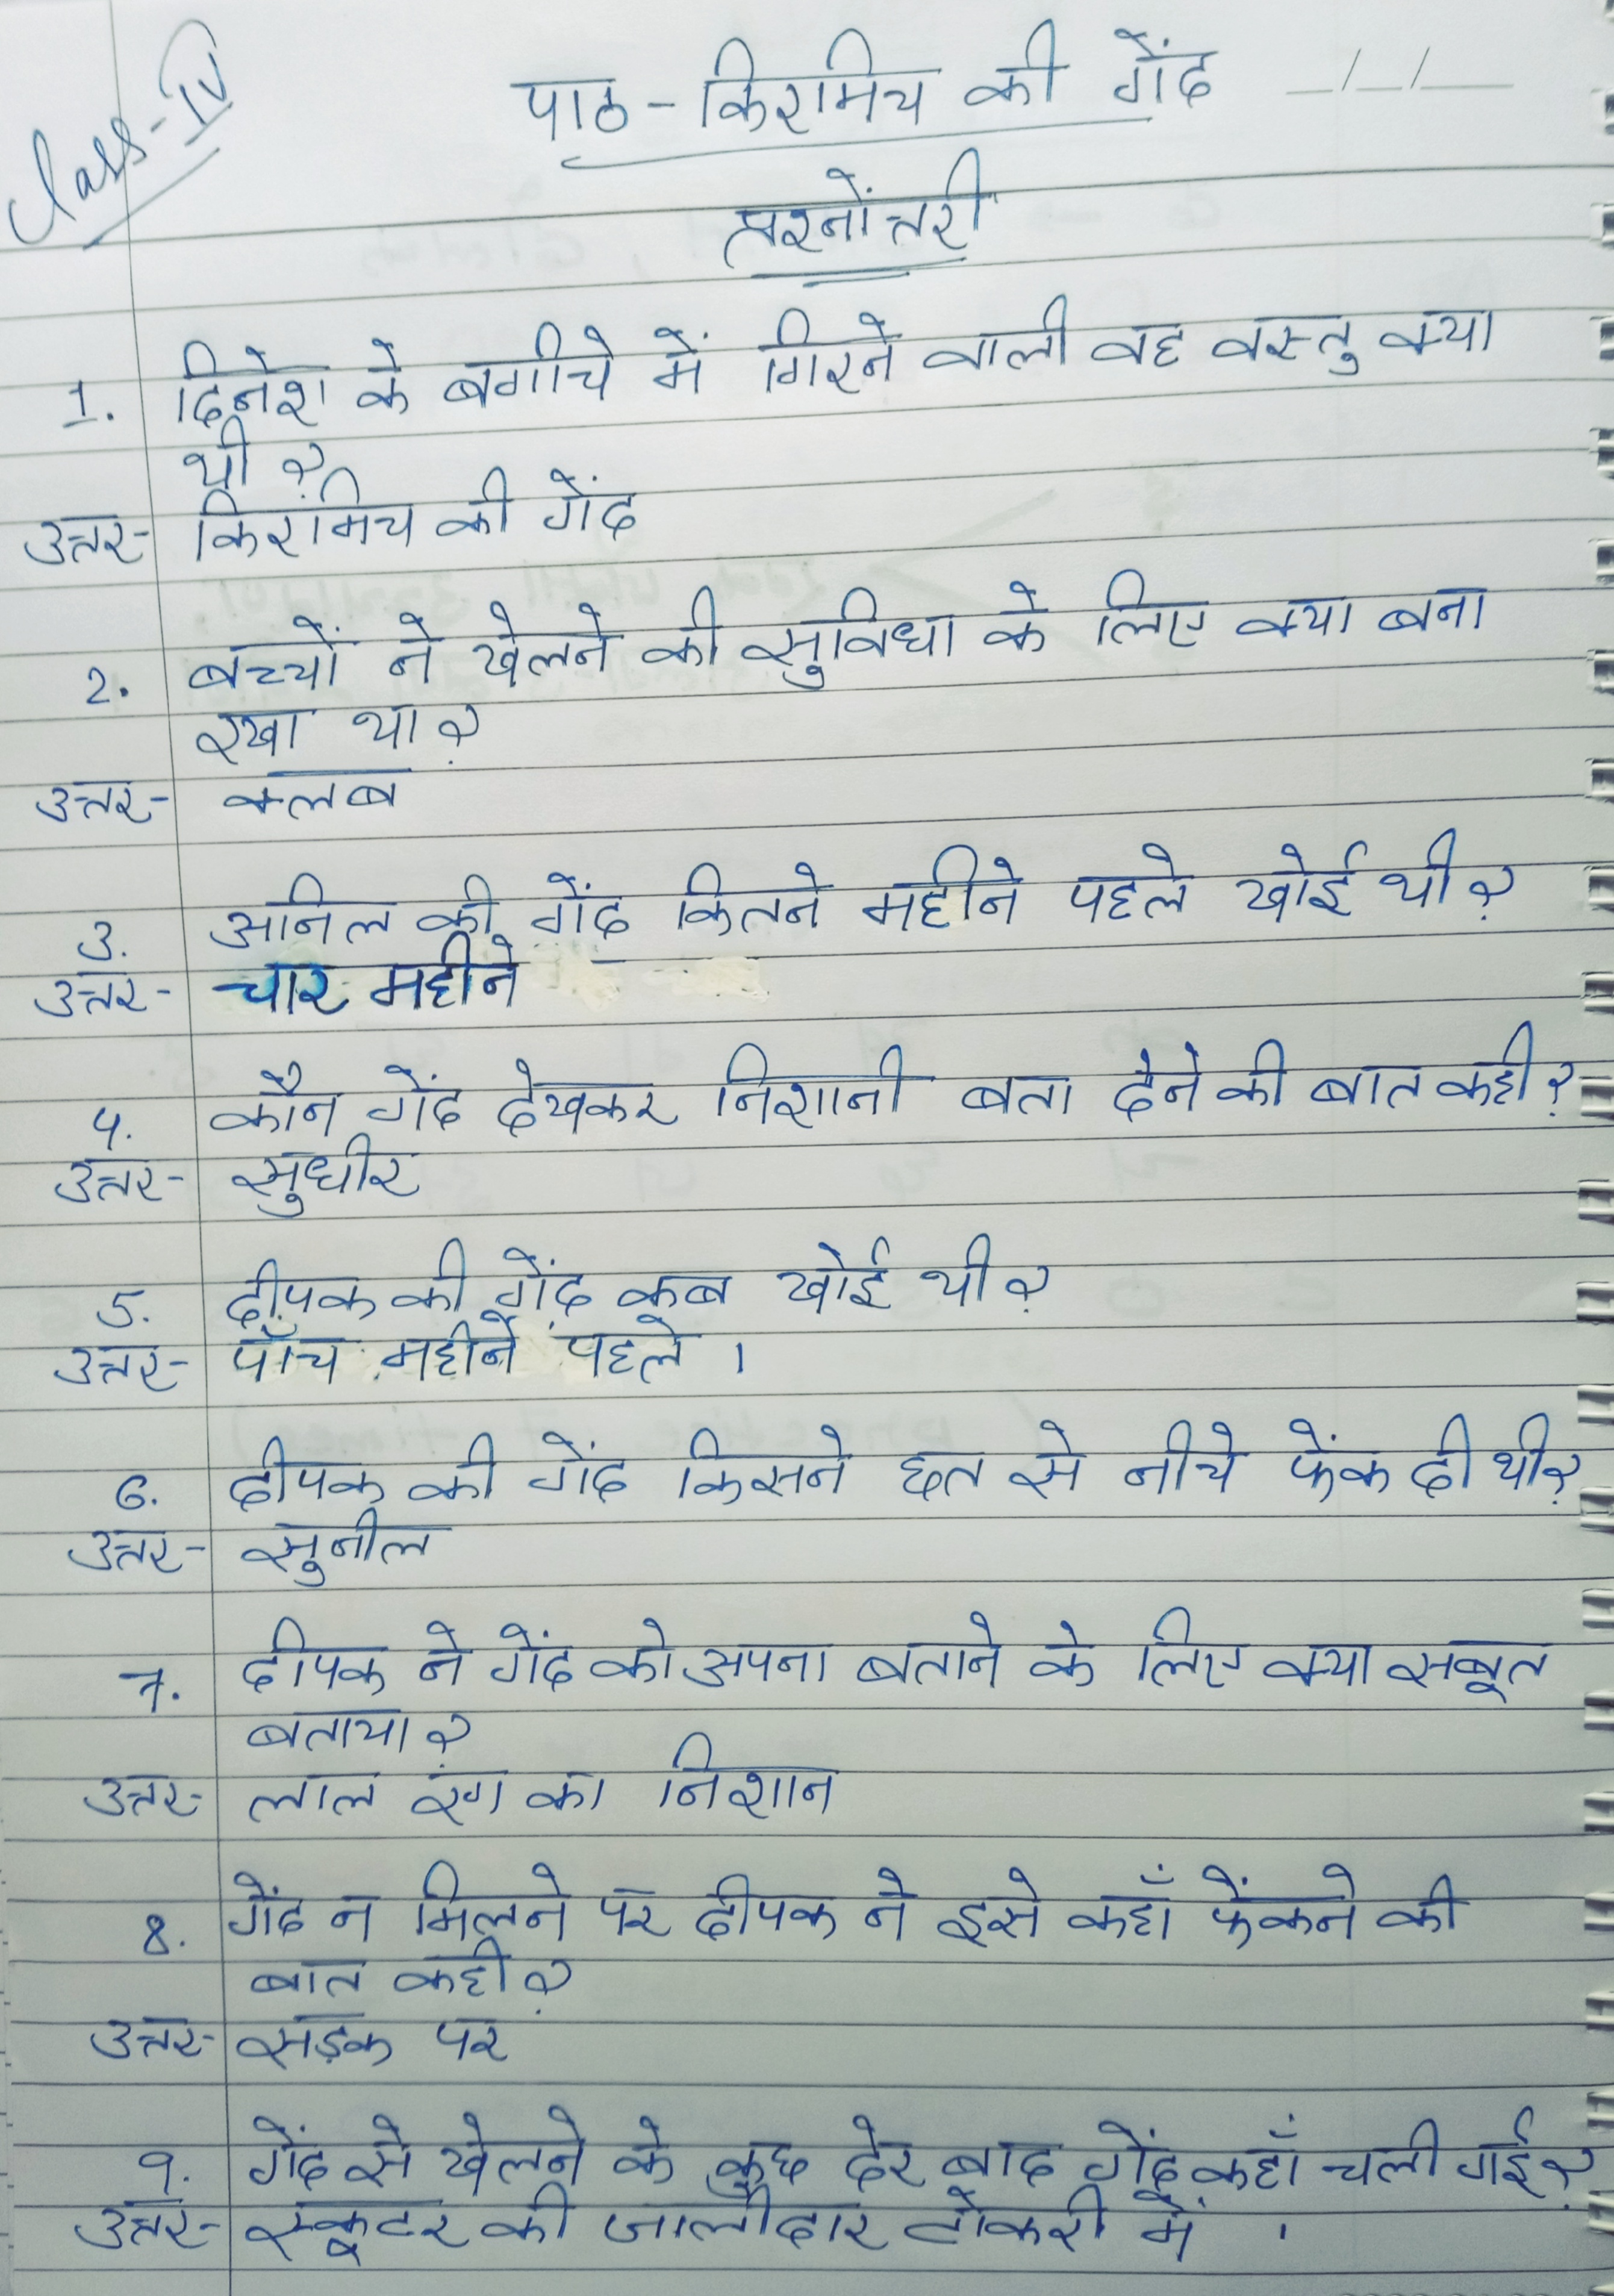 Class-IV
पाठ - किरमिच की गेंद
प्रश्नोंत्तरी
1. दिनेश के बगीचे में गिरने वाली वह वस्तु क्या
थी ?
उत्तर- किरमिच की गेंद
2. बच्चों ने खेलने की सुविधा के लिए क्या बना
रखा था ?
उत्तर- क्लब
3. अनिल की गेंद कितने महीने पहले खोई थी ?
उत्तर- चार महीने
4. कौन गेंद देखकर निशानी बता देने की बात कही ?
उत्तर- सुधीर
5. दीपक की गेंद कब खोई थी ?
उत्तर- पाँच महीने पहले ।
6. दीपक की गेंद किसने छत से नीचे फेंक दी थी ?
उत्तर- सुनील
7. दीपक ने गेंद को अपना बताने के लिए क्या सबूत
बताया ?
उत्तर- लाल रंग का निशान
8. गेंद न मिलने पर दीपक ने इसे कहाँ फेंकने की
बात कही ?
उत्तर- सड़क पर
9. गेंद से खेलने के कुछ देर बाद गेंद कहाँ चली गई ?
उत्तर- स्कूटर की जालीदार टोकरी में ।